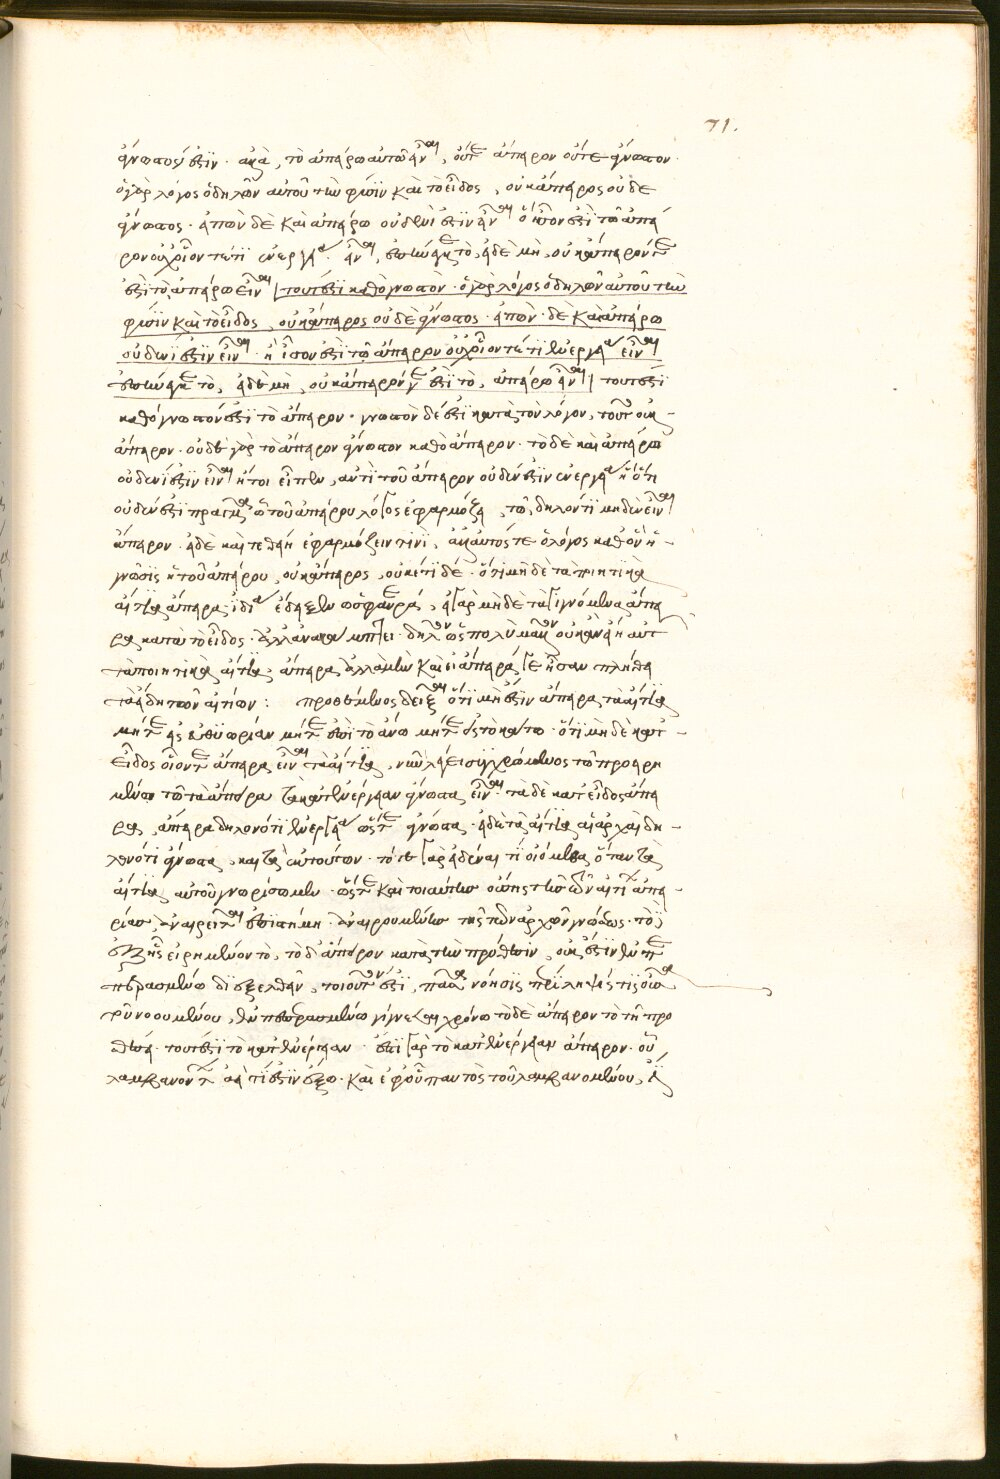 71.
ἄγνωστός ἐστιν. ἀλλὰ, τὸ ἀπείρω αὐτῶ εἶναι, οὔτε ἄπειρον οὔτε ἄγνωστον.
ὁ γὰρ λόγος ὁ δηλῶν αὐτοῦ τὴν φύσιν καὶ τὸ εἶδος, οὐκ ἄπειρος οὐδὲ
ἄγνωστος. εἰπὼν δὲ καὶ ἀπείρω οὐδενὶ ἐστιν εἶναι ὅ ἴσον ἐστὶ τῶ ἄπει
ρον οὐχ οἷόν τέ τι ἐνεργεία εἶναι, ἐπήνεγκε τὸ, εἰ δὲ μὴ, οὐκ ἄπειρόν τε
ἐστὶ τὸ ἀπείρω εἶναι τουτέστι καθὸ γνωστόν. ὁ γὰρ λόγος ὁ δηλῶν αὐτοῦ τὴν
φύσιν καὶ τὸ εἶδος, οὐκ ἄπειρος οὐδὲ ἄγνωστος. εἰπὼν δὲ καὶ ἀπείρω
οὐδενὶ ἐστιν εἶναι. ἢ ἴσον ἐστὶ τῶ ἄπειρον οὐχ οἷόν τέ τι ἐνεργεία εἶναι
ἐπήνεγκε τὸ, εἰ δὲ μὴ, οὐκ ἄπειρόν γ' ἐστὶ τὸ, ἀπείρω εἶναι τουτέστι
καθὸ γνωστόν ἐστι τὸ ἄπειρον. γνωστὸν δέ ἐστι κατὰ τὸν λόγον, τοῦτο οὐκ
ἄπειρον. οὐδὲ γὰρ τὸ ἄπειρον ἄγνωστον καθὸ ἄπειρον. τὸ δὲ καὶ ἀπείρω
οὐδενί ἐστιν εἶναι ἤτοι εἶπεν, ἀντὶ τοῦ ἄπειρον οὐδέν ἐστιν ἐνεργεία ἢ ὅτι
οὐδέν ἐστι πρᾶγμα ὧ τοῦ ἀπείρου λόγος ἐφαρμόζει, τῶ δηλονότι μηδὲν εἶναι
ἄπειρον. εἰ δὲ καὶ τεθείη ἐφαρμόζειν τινὶ, ἀλλ' αὐτός τε ὁ λόγος καθ' ὃν ἡ
γνῶσις ἡ τοῦ ἀπείρου, οὐκ ἄπειρος, οὐκέτι δέ. ὅτι μὴ δὲ τὰ ποιητικὰ
αἴτια ἄπειρα ἰδία ἔδειξεν ὡς φανερά, εἰ γὰρ μὴ δὲ τὰ γιγνόμενα ἄπει
ρα κατὰ τὸ εἶδος.
τὰ ποιητικὰ αἴτια, ἄπειρα ἀλλὰ μὴν καὶ εἰ ἄπειρά γε ἦσαν πλήθει
τὰ εἴδη τῶν αἰτίων: προθέμενος δεῖξαι ὅτι μή ἐστιν ἄπειρα τὰ αἴτια
μήτε εἰς εὐθυωρίαν μήτε ἐπὶ τὸ ἄνω μήτε ἐπὶ τὸ κάτω. ὅτι μὴ δὲ κατ'
εἶδος οἷόν τε ἄπειρα εἶναι τὰ αἴτια, νῦν λέγει συγχρώμενος τῶ προειρη
μένω τῶ τὰ ἄπειρα τὰ κατ' ἐνέργειαν ἄγνωστα εἶναι. τὰ δὲ κατ' εἶδος ἄπει
ρα, ἄπειρα δηλονότι ἐνεργεία ὥστε ἄγνωστα. εἰ δὲ τὰ αἴτια αἱ ἀρχαὶ δη
λονότι ἄγνωστα, καὶ τὰ ἐκ τούτων. τότε γὰρ εἰδέναι τι οἰόμεθα ὅταν τὰ
αἴτια αὐτοῦ γνωρίσωμεν. ὥστε καὶ τοιαύτην οὔσης τῶν αἰτίων ἀπει
ρίαν, ἀναιρεῖται ἐπιστήμη. ἀναιρουμένης τῆς τῶν ἀρχῶν γνώσεως. τὸ
ἑξῆς εἰρημένον τὸ, τὸ δ' ἄπειρον κατὰ τὴν πρόσθεσιν, οὐκ ἔστιν ἐν πε
περασμένω διεξελθεῖν, τοιοῦτόν ἐστι, πᾶσα νόησις περίληψίς τις οὖσα
τοῦ νοουμένου, ἐν πεπερασμένω γίγνεται χρόνω τὸ δὲ ἄπειρον τὸ τῆ προσ
θέσει. τουτέστι τὸ κατ' ἐνέργειαν. ἐπεὶ γὰρ τὸ κατ' ἐνέργειαν ἄπειρον. οὗ
λαμβάνοντι ἀεί τί ἐστιν ἔξω. καὶ ἐφ' οὗ παντὸς τοῦ λαμβανομένου,